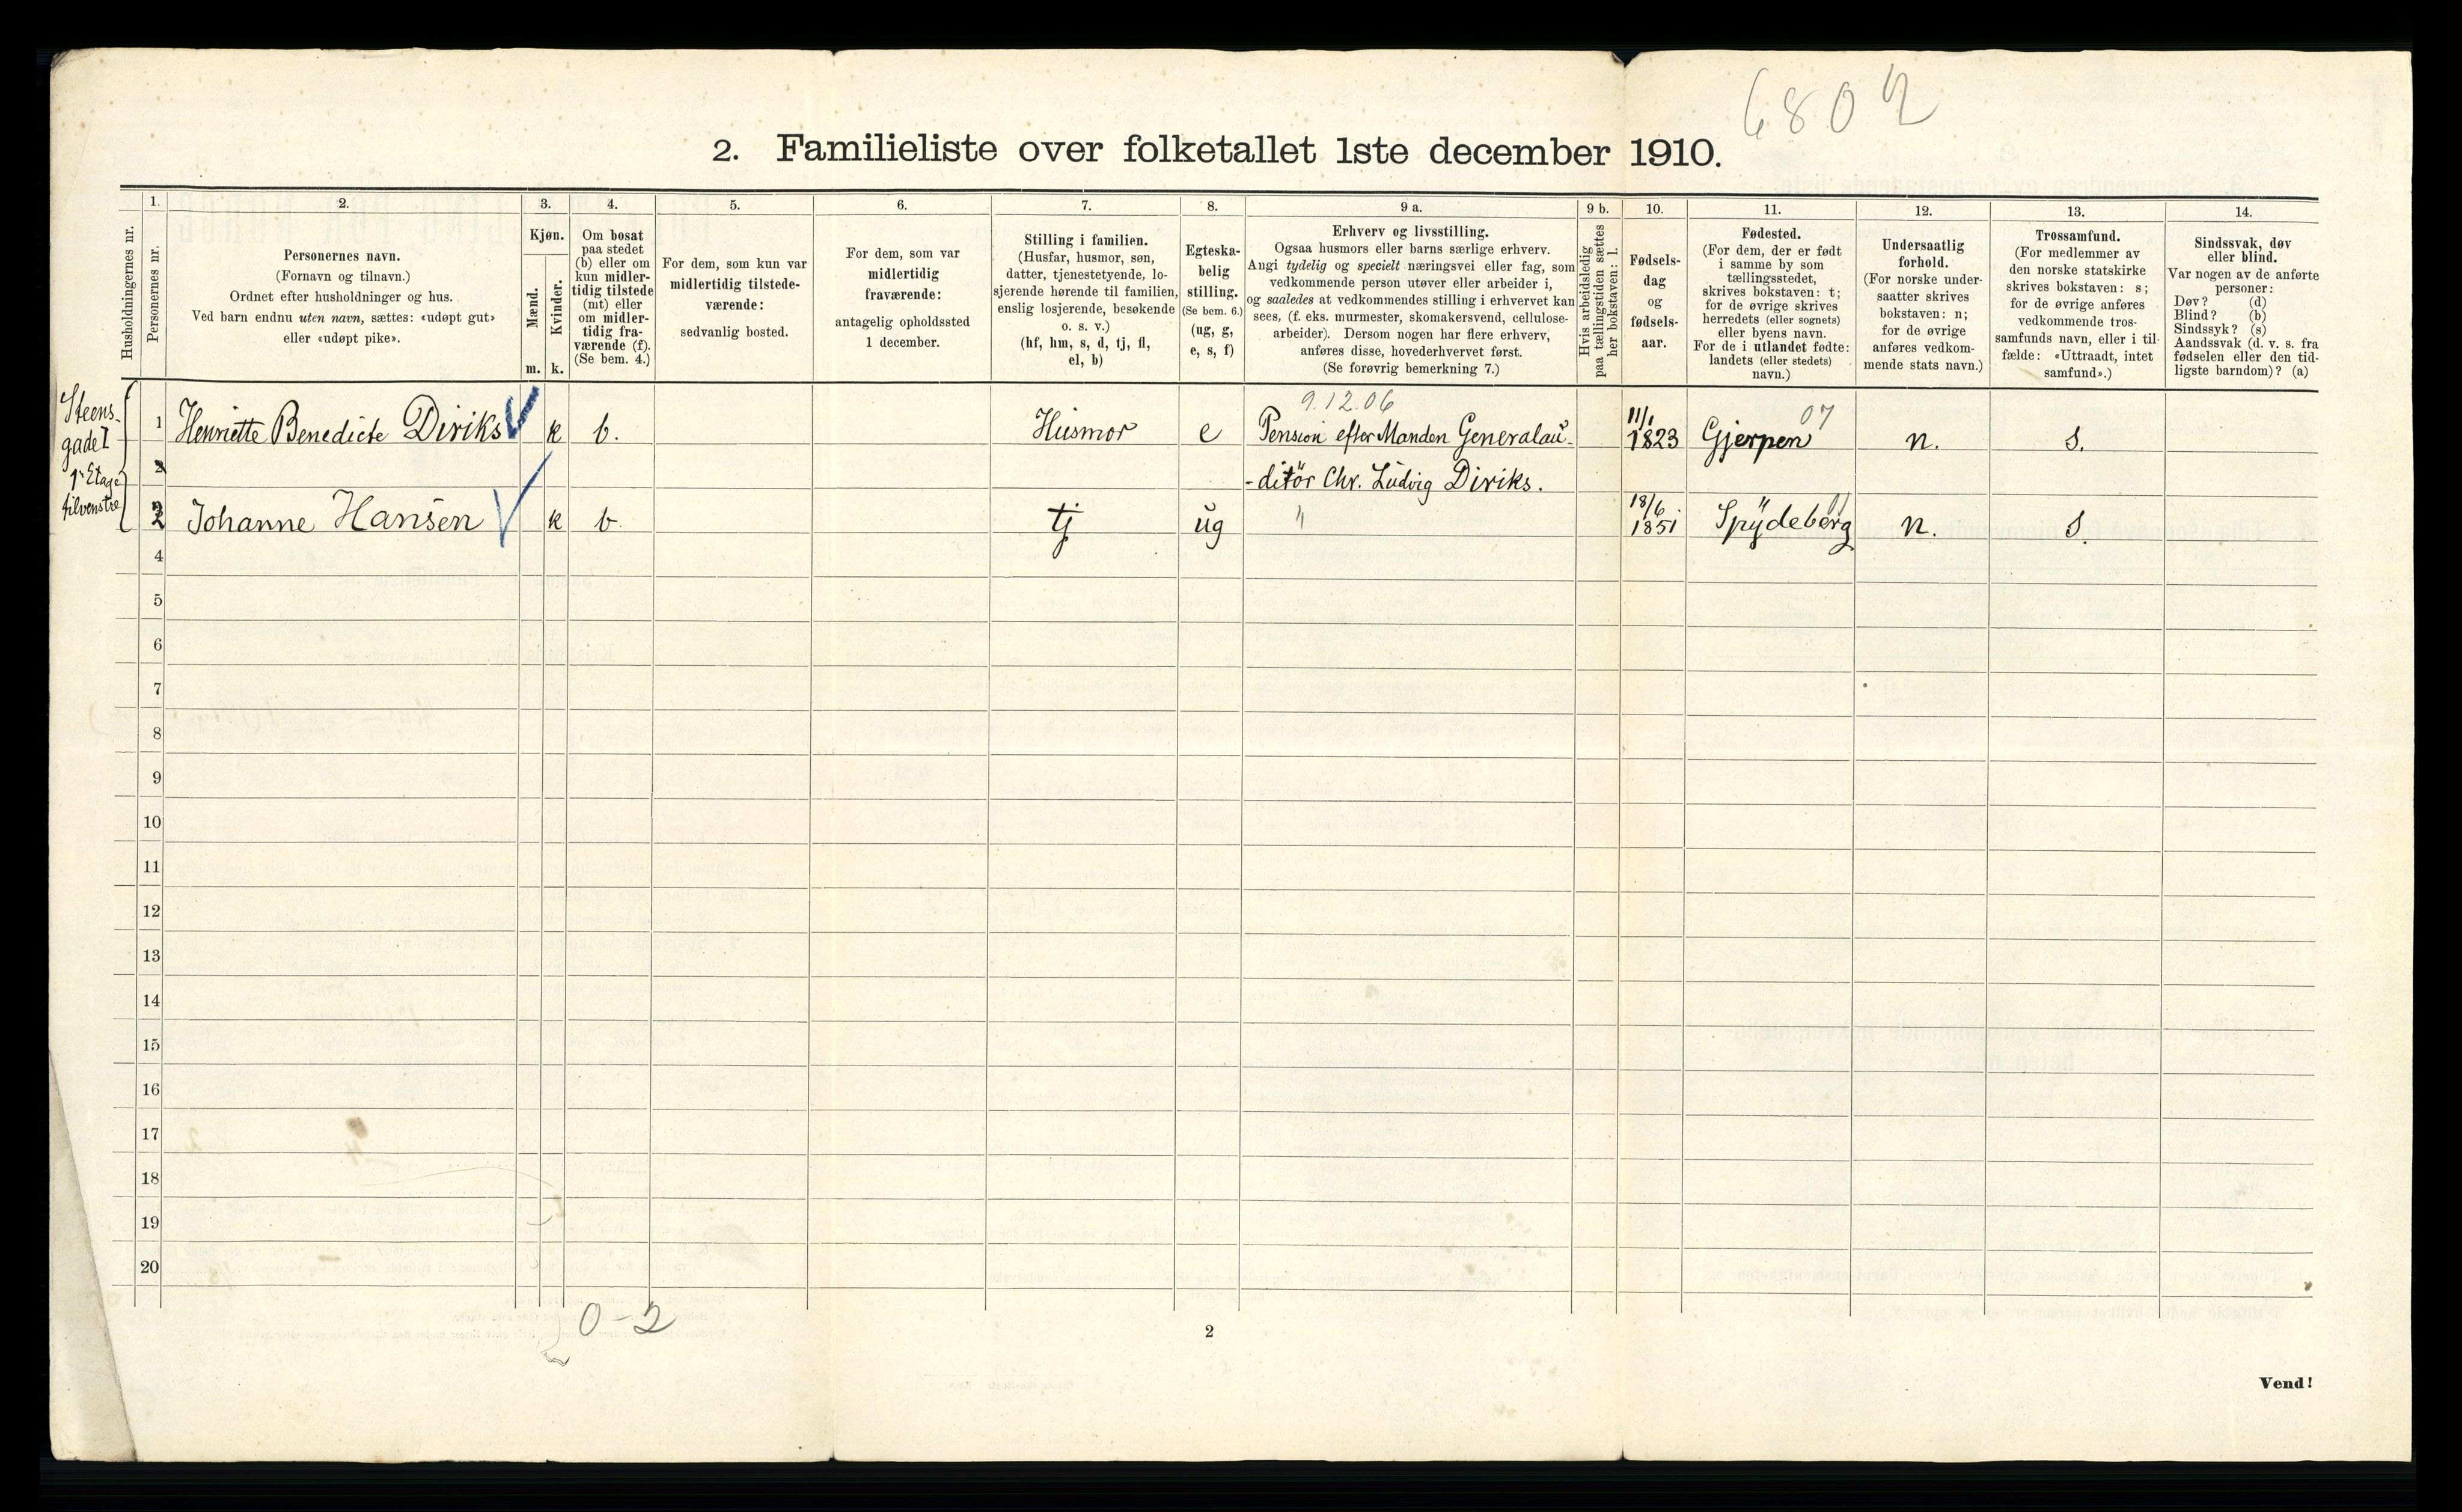 6802
2. Familieliste over folketallet 1ste december 1910.
Husholdningernes nr.
1.
Personernes nr.
2.
Personernes navn.
(Fornavn og tilnavn.)
Ordnet efter husholdninger og hus.
Ved barn endnu uten navn, sættes: «udøpt gut»
eller «udøpt pike».
3.
Kjøn.
Mænd.
Kvinder.
m. k.
4.
Om bosat
paa stedet
(b) eller om
kun midler-
tidig tilstede
(mt) eller
om midler-
tidig fra-
værende (f).
(Se bem. 4.)
5.
For dem, som kun var
midlertidig tilstede-
værende:
sedvanlig bosted.
6.
For dem, som var
midlertidig
fraværende:
antagelig opholdssted
1 december.
7.
Stilling i familien.
(Husfar, husmor, søn,
datter, tjenestetyende, lo-
sjerende hørende til familien,
enslig losjerende, besøkende
o. s. v.)
(hf, hm, s, d, tj, fl,
el, b)
8.
Egteska-
belig
stilling.
(Se bem. 6.)
(ug, g,
e, s, f)
9 a.
Erhverv og livsstilling.
Ogsaa husmors eller barns særlige erhverv.
Angi tydelig og specielt næringsvei eller fag, som
vedkommende person utøver eller arbeider i,
og saaledes at vedkommendes stilling i erhvervet kan
sees, (f. eks. murmester, skomakersvend, cellulose-
arbeider). Dersom nogen har flere erhverv,
anføres disse, hovederhvervet først.
(Se forøvrig bemerkning 7.)
9 b.
Hvis arbeidsledig
paa tællingstiden sættes
her bokstaven: l.
10.
Fødsels-
dag
og
fødsels-
aar.
11.
Fødested.
(For dem, der er født
i samme by som
tællingsstedet,
skrives bokstaven: t;
for de øvrige skrives
herredets (eller sognets)
eller byens navn.
For de i utlandet fødte:
landets (eller stedets)
navn.)
12.
Undersaatlig
forhold.
(For norske under-
saatter skrives
bokstaven: n;
for de øvrige
anføres vedkom-
mende stats navn.)
13.
Trossamfund.
(For medlemmer av
den norske statskirke
skrives bokstaven: s;
for de øvrige anføres
vedkommende tros-
samfunds navn, eller i til-
fælde: «Uttraadt, intet
samfund».)
14.
Sindssvak, døv
eller blind.
Var nogen av de anførte
personer:
Døv? (d)
Blind? (b)
Sindssyk? (s)
Aandssvak (d. v. s. fra
fødselen eller den tid-
ligste barndom)? (a)
Steens-
gade I
1ste Etage
tilvenstre
9.12.06
1 Henriette Benedicte Diriks k b. Husmor e Pension efter Manden Generalau- 11/1 1823 Gjerpen 07 n. s.
2 -ditør Chr. Ludvig Diriks.
2 Johanne Hansen k b tj ug " 18/6 1851 Spydeberg 01 n. s.
4
5
6
7
8
9
10
11
12
13
14
15
16
17
18
19
20
0-2
2
Vend!